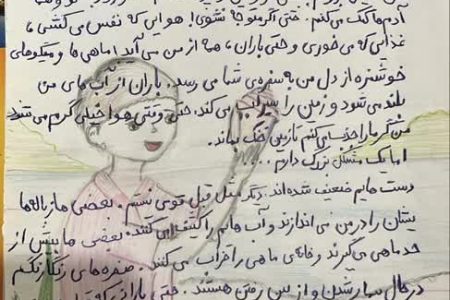 آدم‌ها کمک می‌کنم. حتی اگر متوجه نشوی! هوایی که نفس می‌کشی،
غذایی که می‌خوری و حتی باران، همه از من می‌آید! ماهی‌ها و میگوهای
خوشمزه از دل من به سفره‌ی شما می‌رسد. باران از آب‌های من
بلند می‌شود و زمین را سیراب می‌کند. حتی وقتی هوا خیلی گرم می‌شود
من گرما را جذب می‌کنم تا زمین خنک بماند.
اما یک مشکل بزرگ دارم ...
دست‌هایم ضعیف شده‌اند. دیگر مثل قبل قوی نیستم. بعضی‌ها زباله‌ها
یشان را در من می‌اندازند و آب‌هایم را کثیف می‌کنند. بعضی‌ها بیش از
حد ماهی می‌گیرند و خانه‌ی ماهی‌ها را خراب می‌کنند. صخره‌های رنگارنگم
در حال بیمار شدن و از بین رفتن هستند. حتی